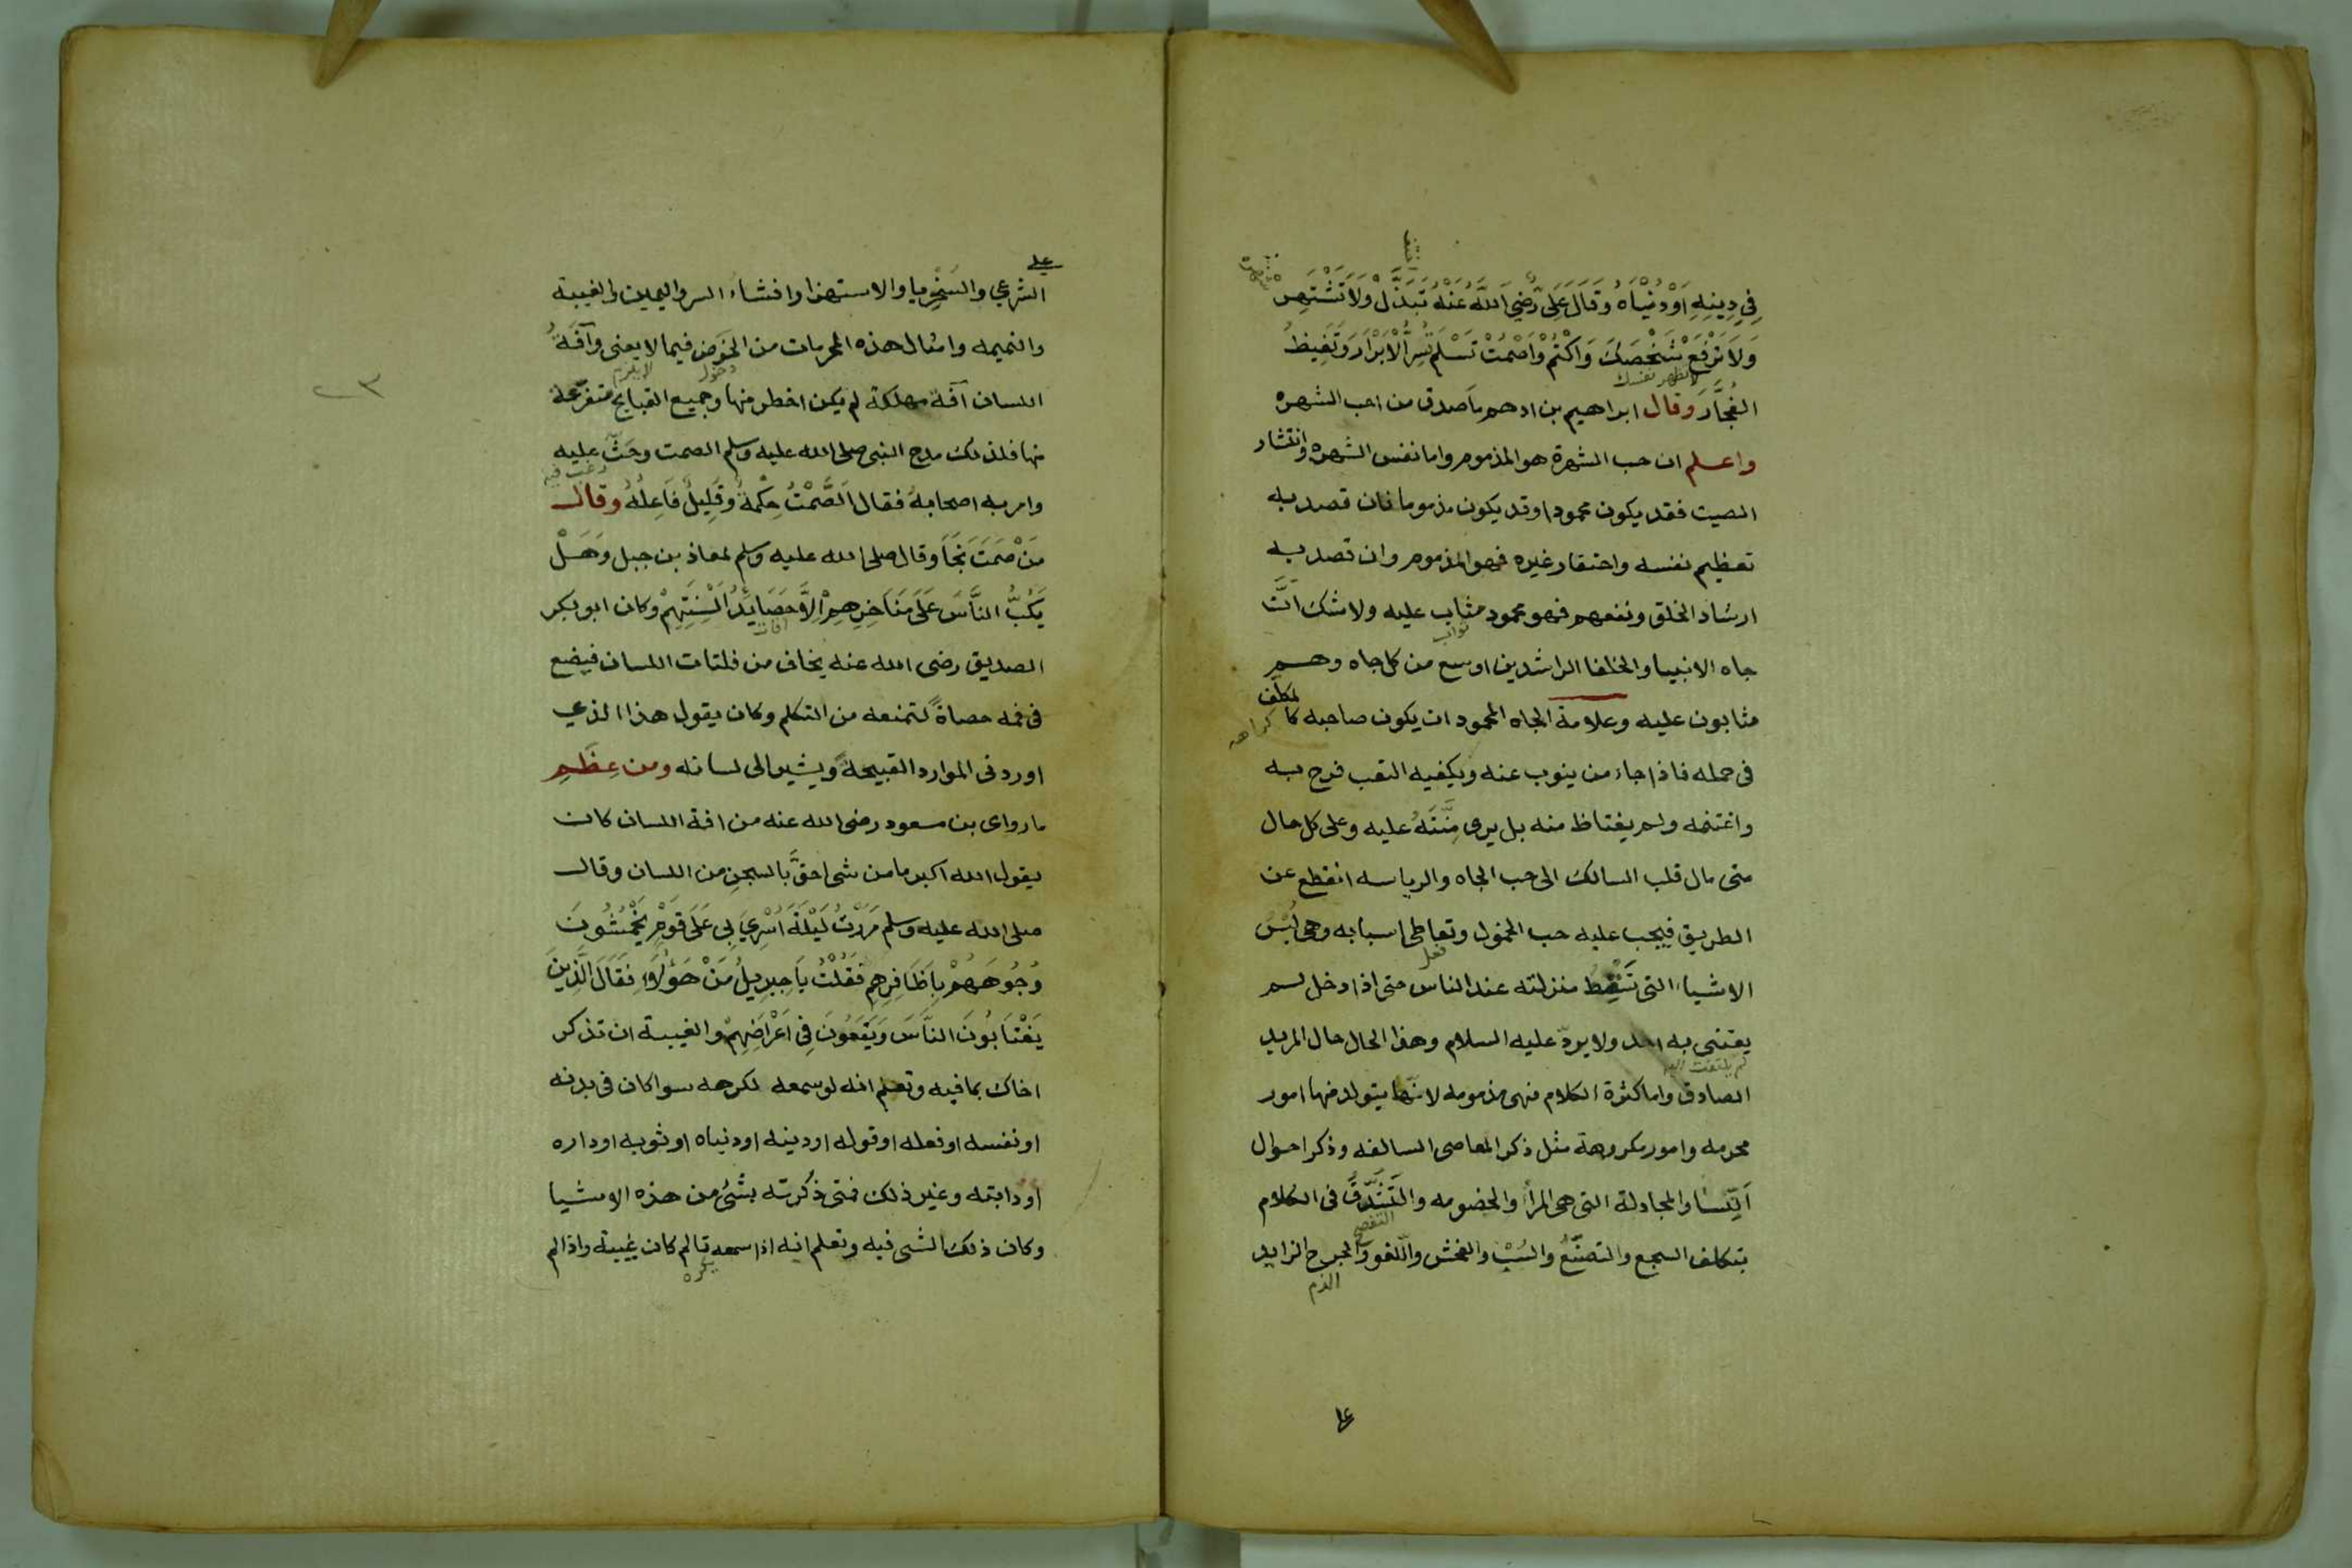 فِي دِينِهِ اَوْ دُنْيَاهُ وَقَالَ عَلِى رَّضِيَ اللَّهُ عَنْهُ تَبَذَّلْ وَلَا تَشْتَهِر
وَلَا تَرْفَعْ شَخْصَكَ وَاكْتُمْ وَاصْمُتْ تَسْلَمْ تَسُرُّ الْاَبْرَارَ وَتَغِيظُ
لا تظهر نفسك
الفُجَّارَ وقال ابراهيم بن ادهم ما صدق من احب الشهره
واعلم ان حب الشهرة هو المذموم واما نفس الشهره وانتشار
الصيت فقد يكون محمودا وقد يكون مذموما فان قصد به
تعظيم نفسه واحتقار غيره فهو المذموم وان قصد به
ارشاد الخلق ونفعهم فهو محمود مثاب عليه ولا شك انَّ
ثواب
جاه الانبيا والخلفا الراشدين اوسع من كل جاه وهم
مثابون عليه وعلامة الجاه المحمود ان يكون صاحبه كا لمكلف
كراهه
فى حمله فاذا جاء من ينوب عنه ويكفيه التعب فرح به
واغتنمه ولم يغتاظ منه بل يرى مِنَّتَهُ عليه وعلى كل حال
متى مال قلب السالك الى حب الجاه والرياسه انقطع عن
الطريق فيجب عليه حب الخمول وتعاطى اسبابه وهى لُبْسُ
فعل
الاشياء التى تُسْقِطُ منزلته عند الناس حتى اذا دخل لم
يعتنى به احد ولا يردّ عليه السلام وهذا الحال حال المريد
لم يلتفت اليه
الصادق واما كثرة الكلام فهى مذمومه لانها يتولد منها امور
محرمه وامور مكروهة مثل ذكر المعاصى السالفه وذكر احوال
النِّسا والمجادلة التى هى المرا والخصومه والتَّشَدُّق فى الكلام
التفصح
بتكلف السجع والتصنّع والسَّب والفحش واللغو والمزح الزايد
الذم
على
الشرعي والسخريا والاستهزا وافشاء السر واليمين والغيبة
والنميمه وامثال هذه المحرمات من الخَوض فيما لا يعنى وآفَةُ
دخول لا يلزم
اللسان آفة مهلكة لم يكن اخطر منها وجميع القبايح متفرعة
منها فلذلك مدح النبى صلى الله عليه وسلم الصمت وحَثّ عليه
رغب فيه
وامر به اصحابهُ فقال اَلصَّمْتُ حِكْمَةٌ وَقَلِيلٌ فَاعِلُهُ وقال
مَنْ صَمَتَ نَجَا وقال صلى الله عليه وسلم لمعاذ بن جبل وَهَلْ
يَكُبُّ النَّاسَ عَلَى مَنَاخِرِهِمْ اِلَّا حَصَايِدُ اَلْسِنَتِهِمْ وكان ابو بكر
آفات
الصديق رضى الله عنه يخاف من فلتات اللسان فيضع
فى فمه حصاةً لتمنعه من التكلم وكان يقول هذا الذي
اوردنى الموارد القبيحة ويشير الى لسانه ومن عِظَمِ
ما رواى بن مسعود رضى الله عنه من افة اللسان كان
يقول الله اكبر ما من شى احقُّ بالسجن من اللسان وقال
صلى الله عليه وسلم مَرَرْتُ لَيْلَةَ اُسْرِيَ بِى عَلَى قَوْمٍ يَخْمُشُونَ
وُجُوهَهُمْ بِاَظَافِرِهِمْ فَقُلْتُ يَا جِبرِيلُ مَنْ هَؤُلَاءِ فَقَالَ الَّذِينَ
يَغْتَابُونَ النَّاسَ وَيَقَعُونَ فِى اَعْرَاضِهِمْ والغيبة ان تذكر
اخاك بما فيه وتعلم انه لو سمعه لكرهه سوا كان فى بدنه
او نفسه او فعله او قوله او دينه او دنياه او ثوبه او داره
او دابته وغير ذلك فمتى ذكرته بشئ من هذه الاشيا
وكان ذلك الشى فيه وتعلم انه اذا سمعه تالم كان غيبة واذا لم
يكره